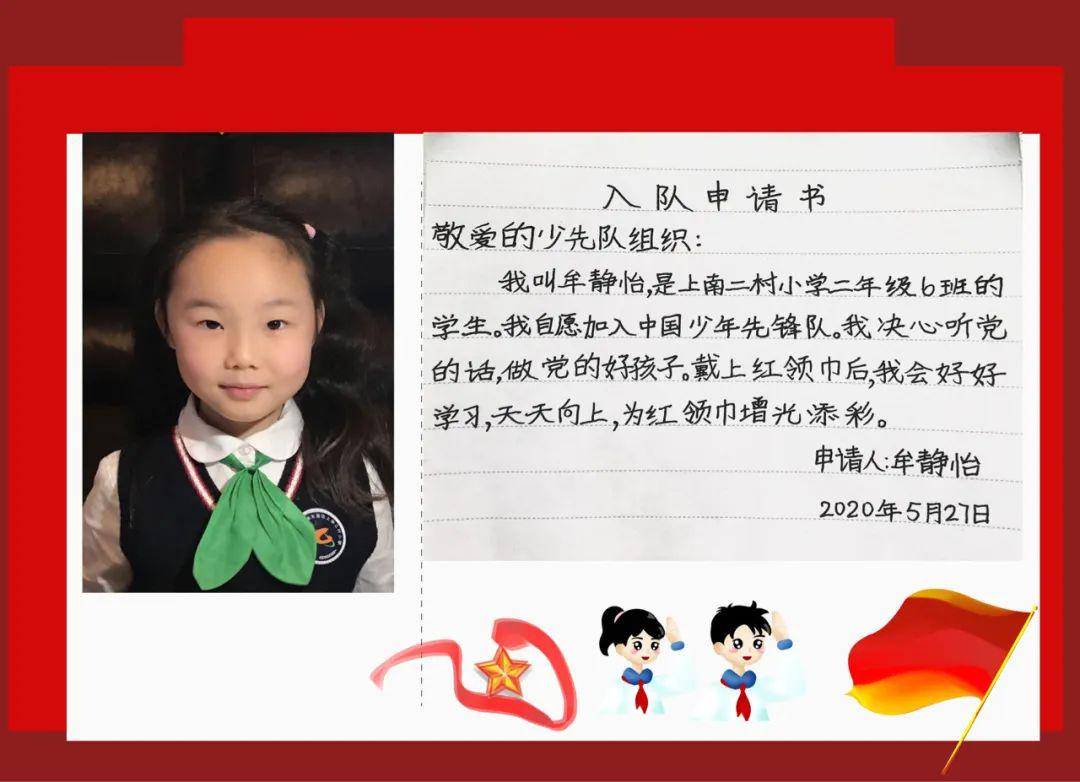 入队申请书
敬爱的少先队组织:
我叫牟静怡,是上南二村小学二年级6班的
学生。我自愿加入中国少年先锋队。我决心听党
的话,做党的好孩子。戴上红领巾后,我会好好
学习,天天向上,为红领巾增光添彩。
申请人:牟静怡
2020年5月27日